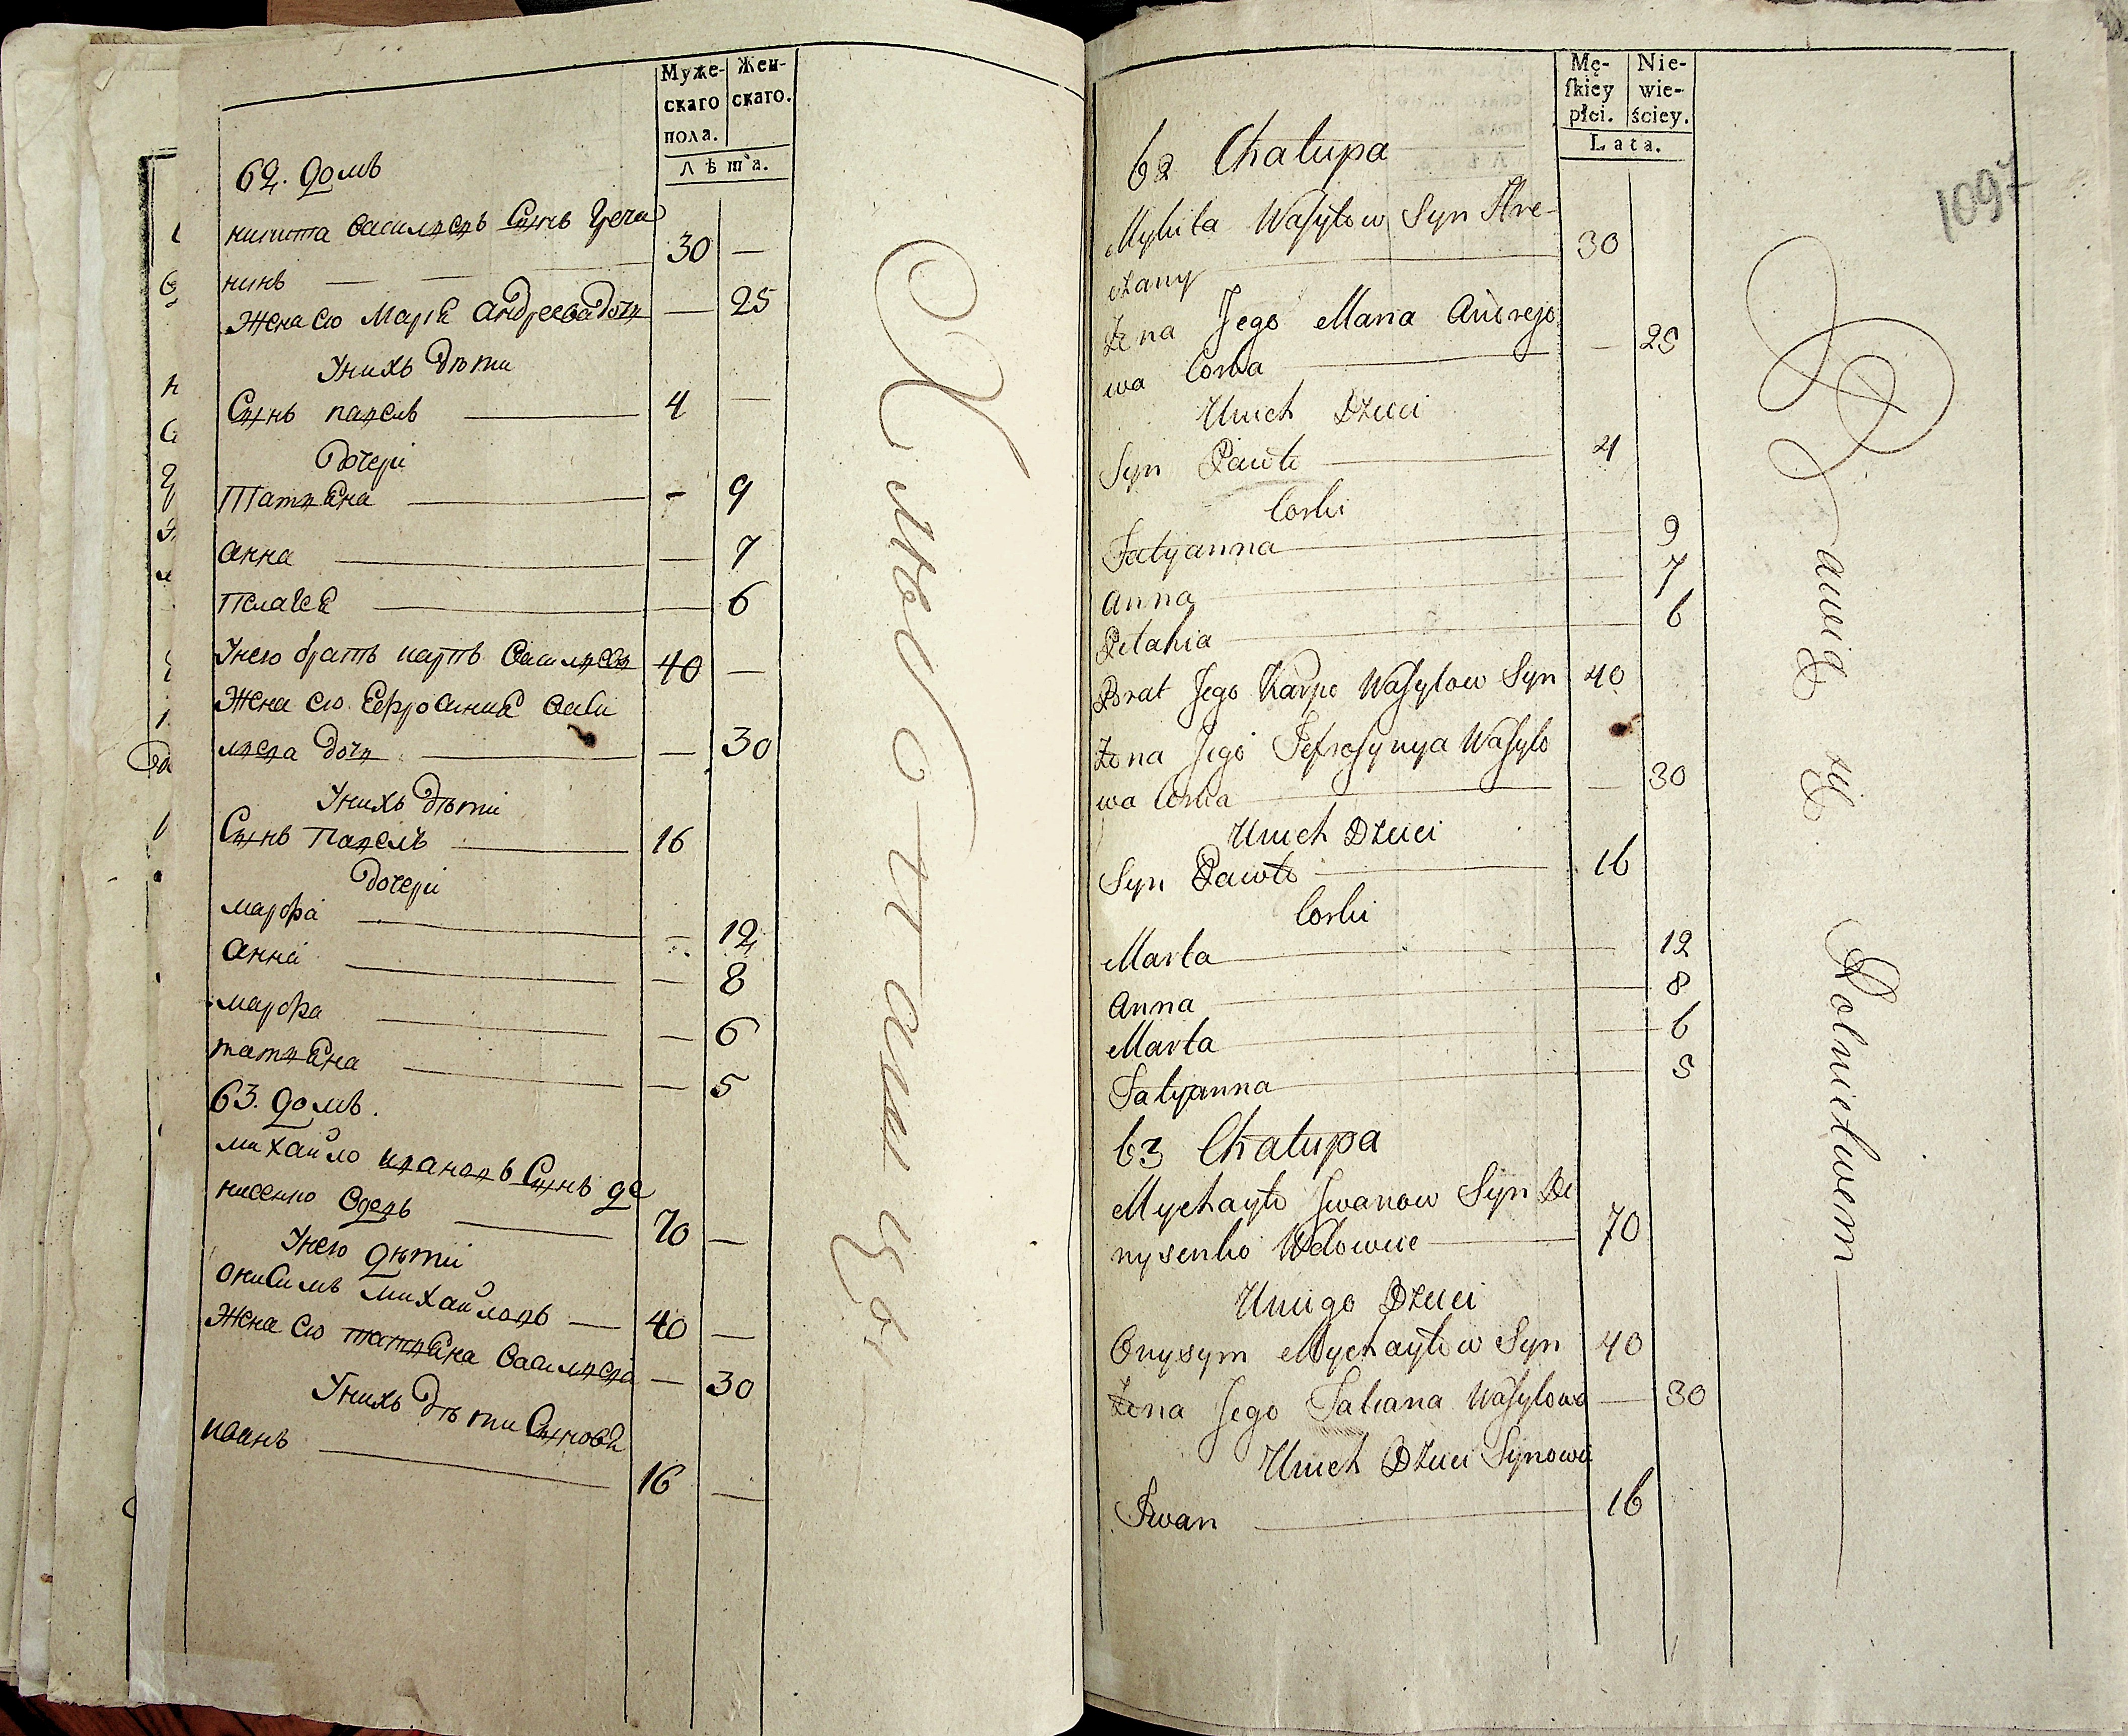 Муже-
скаго
пола.
Жен-
скаго.
Лѣта.
62. домъ
никита василъевъ Сынъ Гречи
нинъ — — 30 —
Жена его Марія андреева дочь — 25
Унихъ дѣти
Сынъ павелъ — 4 —
дочери
Татъяна — 9
анна — 7
Пелагея — 6
Унего братъ карпъ василъевъ 40 —
Жена его Ефросиния васи
лъева дочъ — 30
Унихъ дѣти
Сынъ Павелъ — 16
дочери
марфа — 12
анна — 8
марфа — 6
татъяна — 5
63. домъ.
михайло ивановъ Сынъ де
нисенко вдовъ — 70 —
Унего дѣти
онисимъ михайловъ — 40 —
Жена его татъяна василъева — 30
Унихъ дѣти Сыновя
иванъ — 16 —
Хлѣбопашцы
Mę-
skiey
płci.
Nie-
wie-
ściey.
Lata.
1097
62 Chałupa
Mykita Wasylow Syn Hre-
czany — 30
Żona Jego Maria Andrejo
wa Corka — 25
Unich Dzieci
Syn Pawło — 4
Corki
Tatyanna — 9
Anna — 7
Pelahia — 6
Brat Jego Karpo Wasylow Syn 40
Żona Jego Jefrosynya Wasylo
wa Corka — 30
Unich Dzieci
Syn Pawło — 16
Corki
Marta — 12
Anna — 8
Marta — 6
Tatyanna — 5
63 Chałupa
Mychayło Jwanow Syn De
nysenko Wdowiec — 70
Uniego Dzieci
Onysym Mychayłow Syn 40
Żona Jego Tatiana Wasylowa — 30
Unich Dzieci Synowie
Jwan — 16
Bawią się Rolnictwem